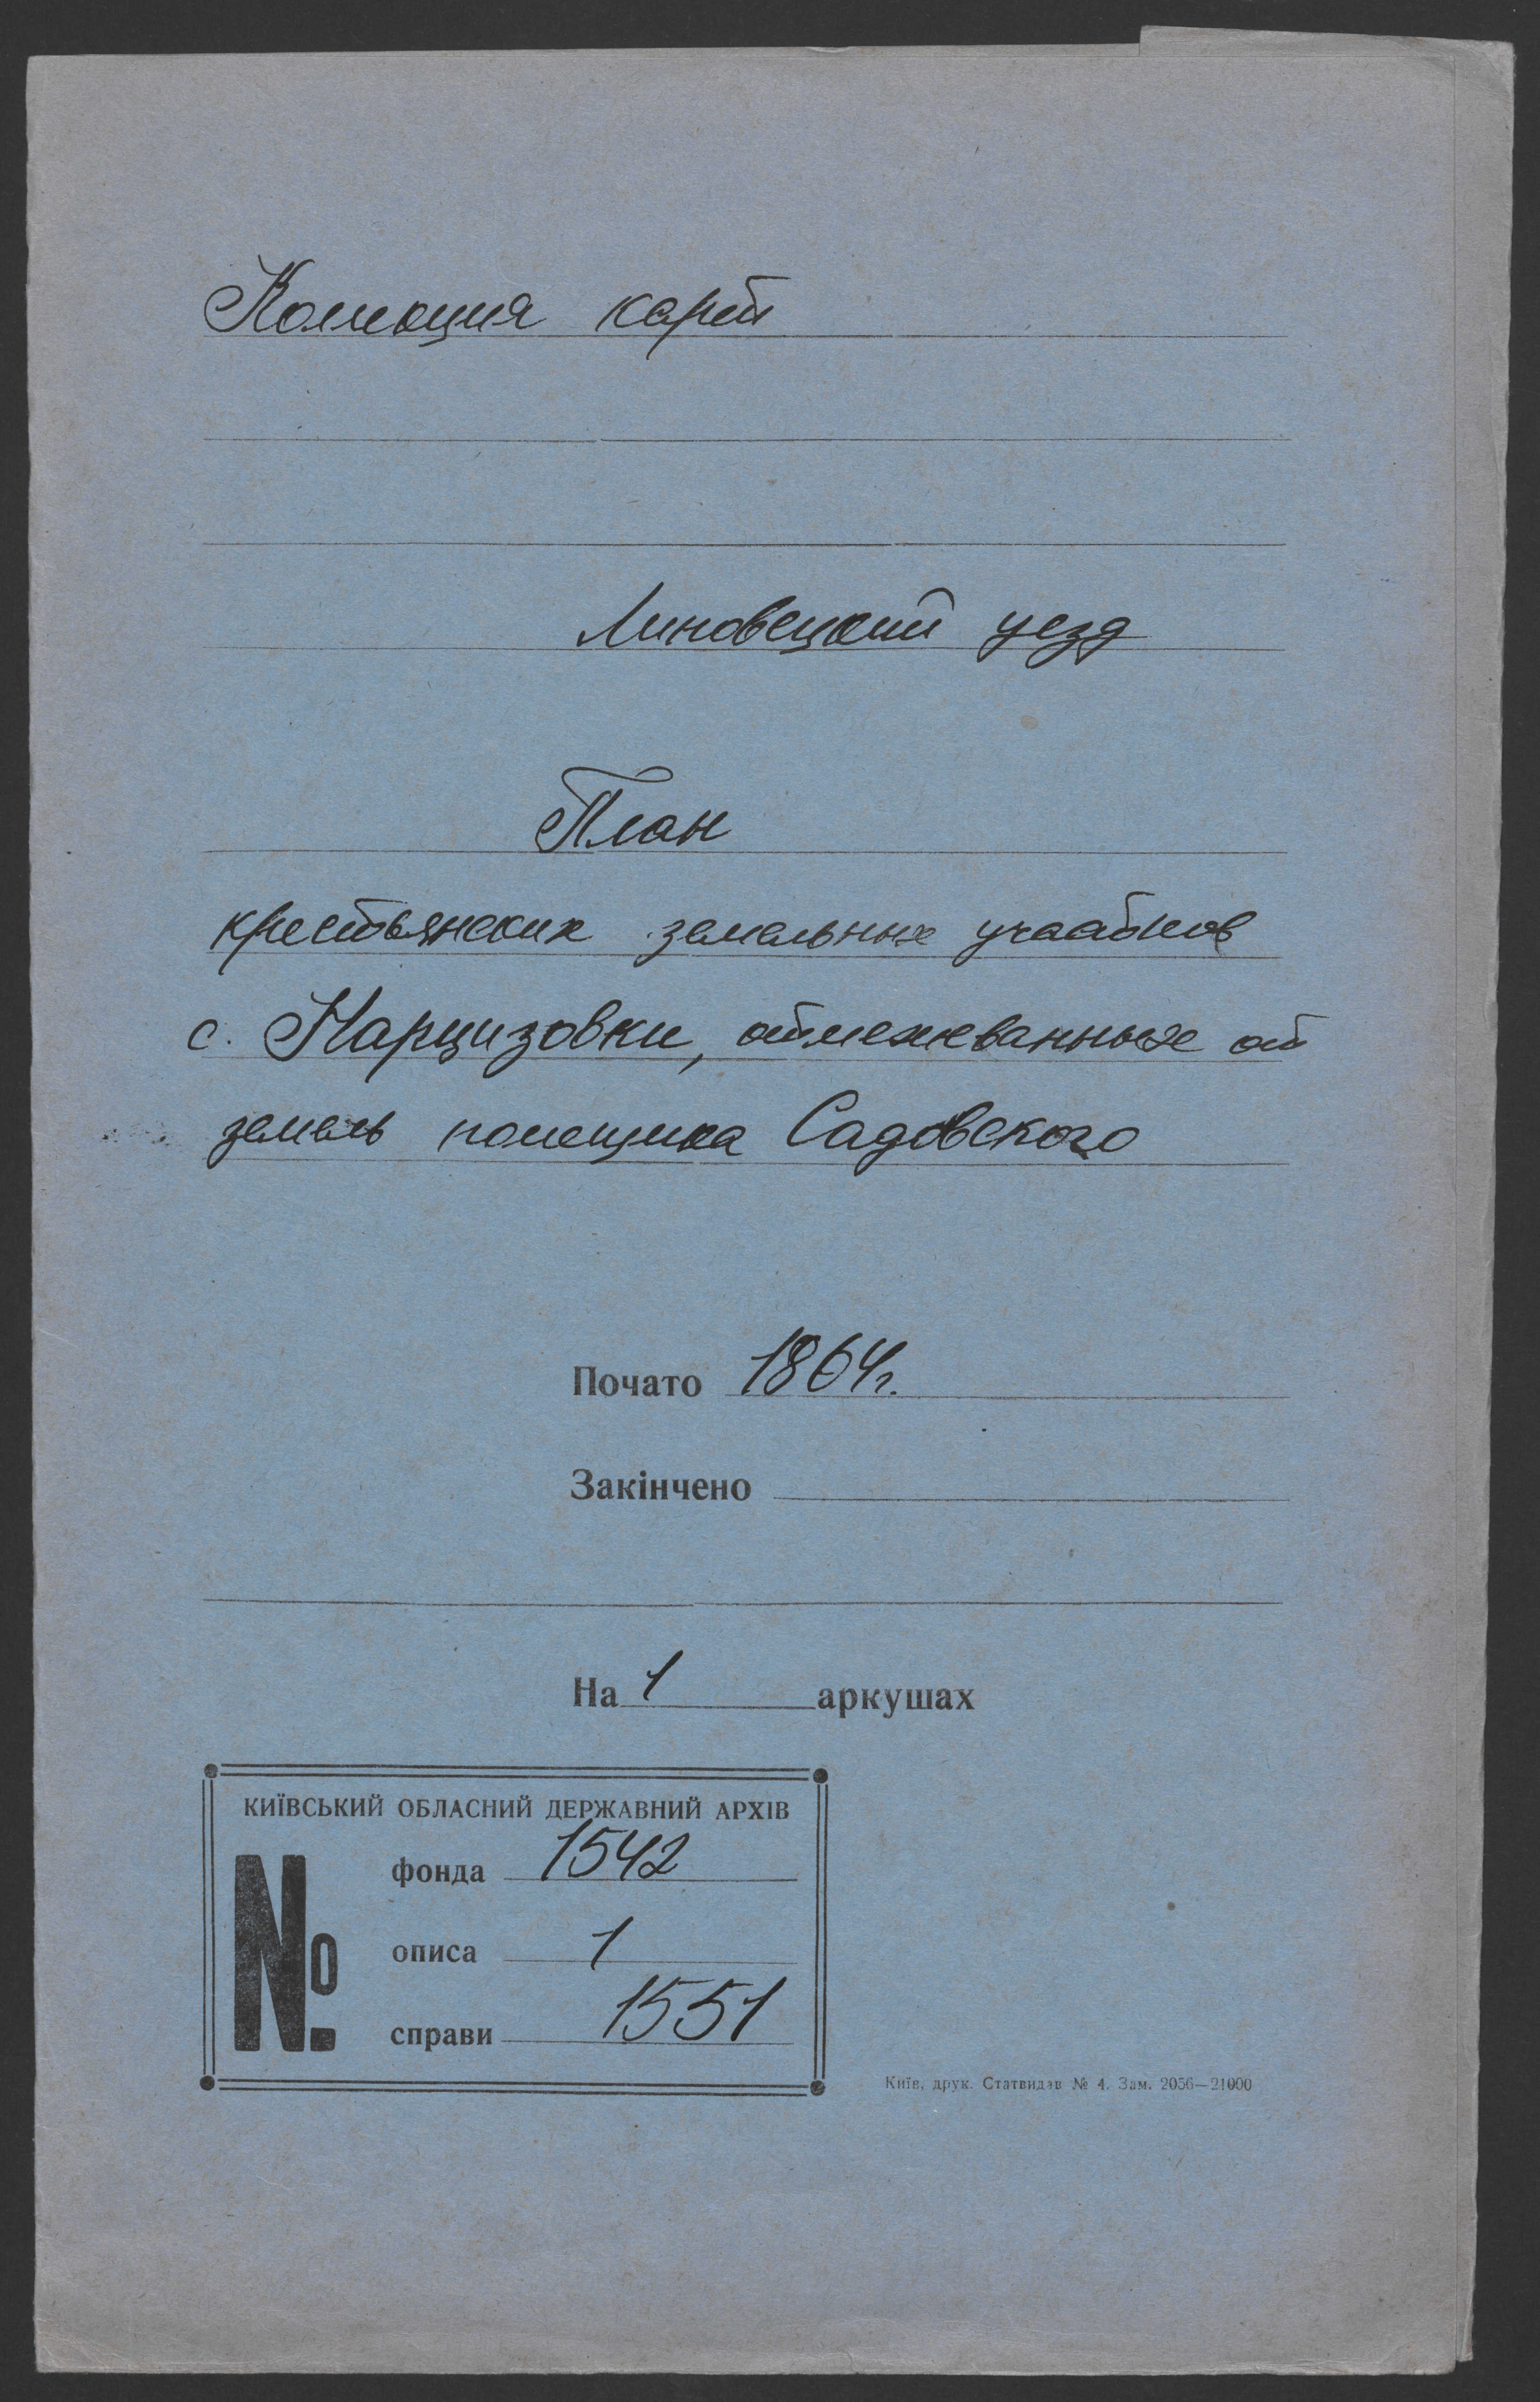 Коллекция карт
Липовецкий уезд
План
крестьянских земельных участков
с. Нарцизовки, отмежеванных от
земель помещика Садовского
Почато 1864г.
Закінчено
На 1 аркушах
КИЇВСЬКИЙ ОБЛАСНИЙ ДЕРЖАВНИЙ АРХІВ
№
фонда 1542
описа 1
справи 1551
Київ, друк. Статвидав № 4. Зам. 2056—21000